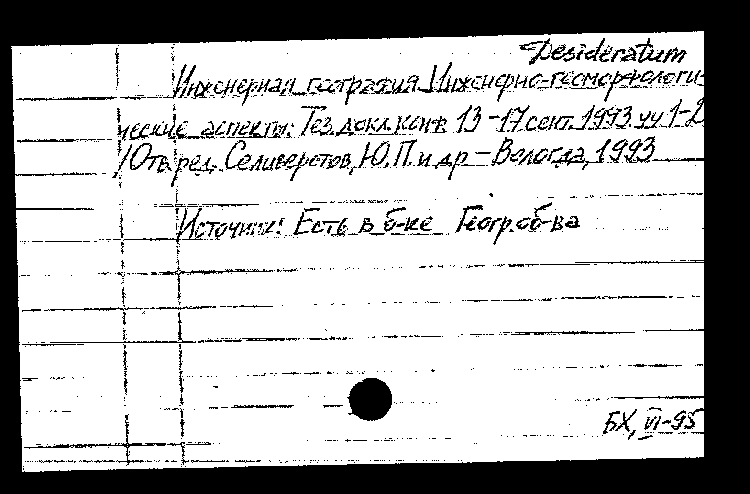 Desideratum
Инженерная география. Инженерно-геоморфологи-
ческие аспекты: Тез. докл. конф. 13-17 сент. 1993. чч 1-2
/Отв. ред. Селиверстов, Ю.П. и др - Вологда, 1993
Источник: Есть в б-ке Геогр. об-ва
БХ, VI-95